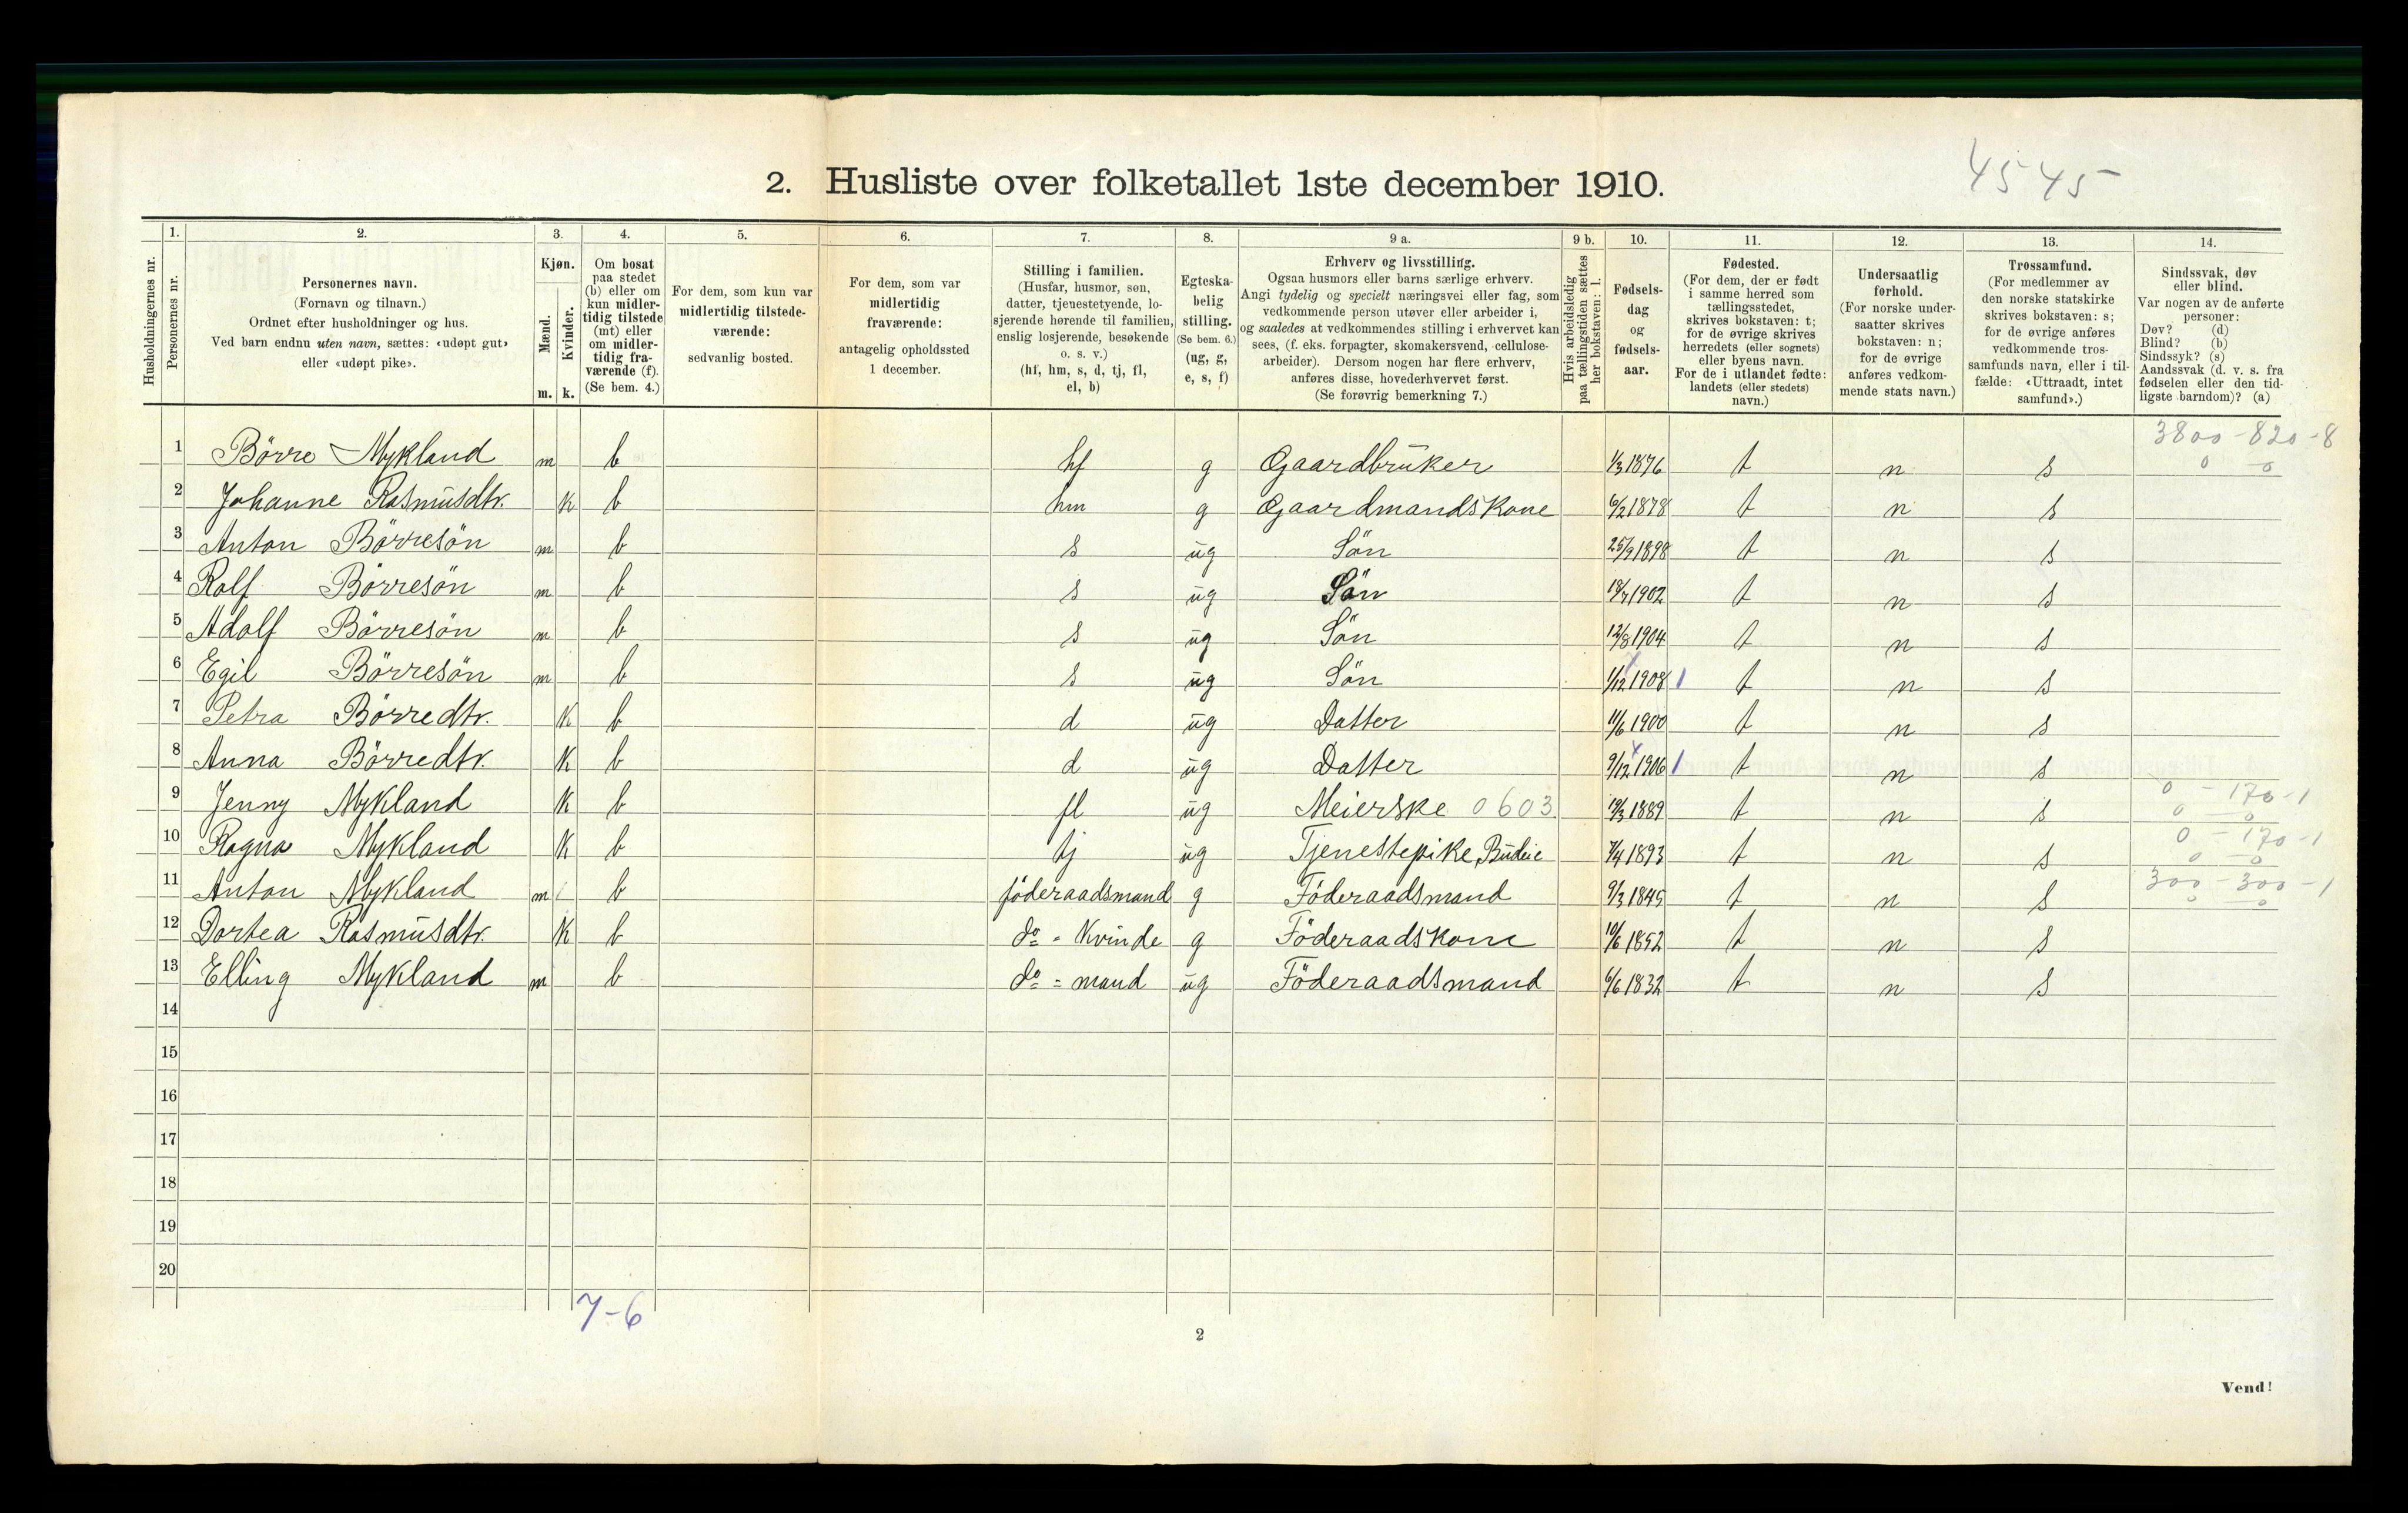 45 45
2. Husliste over folketallet 1ste december 1910.
1. 2. 3. 4. 5. 6. 7. 8. 9 a. 9 b. 10. 11. 12. 13. 14.
Husholdningernes nr.
Personernes nr.
Personernes navn.
(Fornavn og tilnavn.)
Ordnet efter husholdninger og hus.
Ved barn endnu uten navn, sættes: «udøpt gut»
eller «udøpt pike».
Kjøn.
Mænd.
Kvinder.
m. k.
Om bosat
paa stedet
(b) eller om
kun midler-
tidig tilstede
(mt) eller
om midler-
tidig fra-
værende (f).
(Se bem. 4.)
For dem, som kun var
midlertidig tilstede-
værende:
sedvanlig bosted.
For dem, som var
midlertidig
fraværende:
antagelig opholdssted
1 december.
Stilling i familien.
(Husfar, husmor, søn,
datter, tjenestetyende, lo-
sjerende hørende til familien,
enslig losjerende, besøkende
o. s. v.)
(hf, hm, s, d, tj, fl,
el, b)
Egteska-
belig
stilling.
(Se bem. 6.)
(ug, g,
e, s, f)
Erhverv og livsstilling.
Ogsaa husmors eller barns særlige erhverv.
Angi tydelig og specielt næringsvei eller fag, som
vedkommende person utøver eller arbeider i,
og saaledes at vedkommendes stilling i erhvervet kan
sees, (f. eks. forpagter, skomakersvend, cellulose-
arbeider). Dersom nogen har flere erhverv,
anføres disse, hovederhvervet først.
(Se forøvrig bemerkning 7.)
Hvis arbeidsledig
paa tællingstiden sættes
her bokstaven: l.
Fødsels-
dag
og
fødsels-
aar.
Fødested.
(For dem, der er født
i samme herred som
tællingsstedet,
skrives bokstaven: t;
for de øvrige skrives
herredets (eller sognets)
eller byens navn.
For de i utlandet fødte:
landets (eller stedets)
navn.)
Undersaatlig
forhold.
(For norske under-
saatter skrives
bokstaven: n;
for de øvrige
anføres vedkom-
mende stats navn.)
Trossamfund.
(For medlemmer av
den norske statskirke
skrives bokstaven: s;
for de øvrige anføres
vedkommende tros-
samfunds navn, eller i til-
fælde: «Uttraadt, intet
samfund».)
Sindssvak, døv
eller blind.
Var nogen av de anførte
personer:
Døv? (d)
Blind? (b)
Sindssyk? (s)
Aandssvak (d. v. s. fra
fødselen eller den tid-
ligste barndom)? (a)
3800 - 820 - 8
1 Börre Mykland m b hf g Gaardbruker 1/3 1876 t n s 0 - 0
2 Johanne Rasmusdtr. K b hm g Gaardmandskone 6/2 1878 t n s
3 Anton Börresön m b s ug Sön 25/9 1898 t n s
4 Rolf Börresön m b s ug Sön 1902 t n s
5 Adolf Börresön m b s ug Sön 12/8 1904 t n s
6 Egil Börresön m b s ug Sön 1/12 1908 1 t n s
7 Petra Börredtr. K b d ug Datter 11/6 1900 t n s
8 Anna Börredtr. K b d ug Datter 9/12 1906 1 t n s
0 - 170 - 1
9 Jenny Mykland K b fl ug Meierske 0603 1889 t n s 0 - 0
0 - 170 - 1
10 Ragna Mykland K b tj ug Tjenestepike, Budeie 7/4 1893 t n s 0 - 0
300 - 300 - 1
11 Anton Mykland m b föderaadsmand g Föderaadsmand 9/3 1845 t n s 0 0
12 Dortea Rasmusdtr. K b do = Kvinde g Föderaadskone 10/6 1852 t n s
13 Elling Mykland m b do = mand ug Föderaadsmand 6/6 1832 t n s
14
15
16
17
18
19
20
7-6
2
Vend!